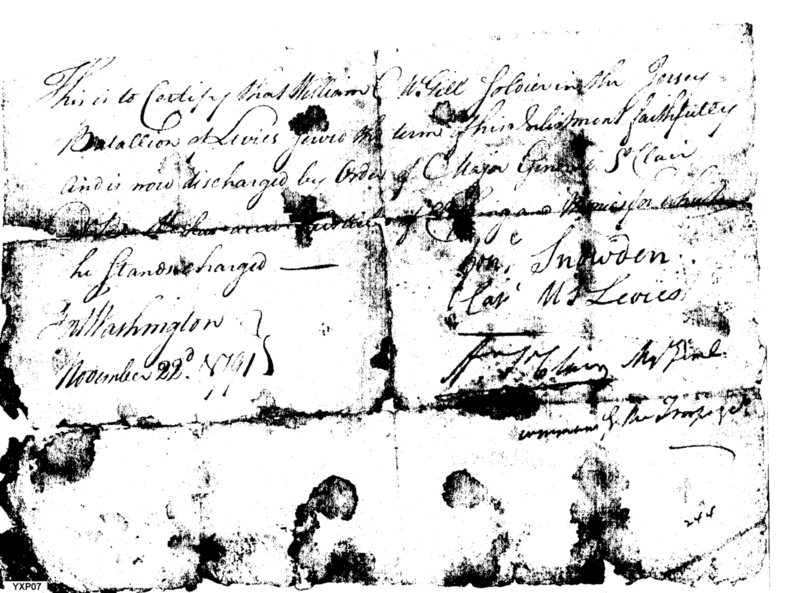 This is to Certify that William McGill Soldier in the Jersey
Batallion of Levies served the term of his Inlistment faithfully
and is now discharged by Order of Major General St Clair
he has and for which
he stands charged —
Jonc Snowden.
Capt U S Levies
Fort Washington
November 22d. 1791
Ar St Clair Mr Genl.
of the Troops
244
YXP07